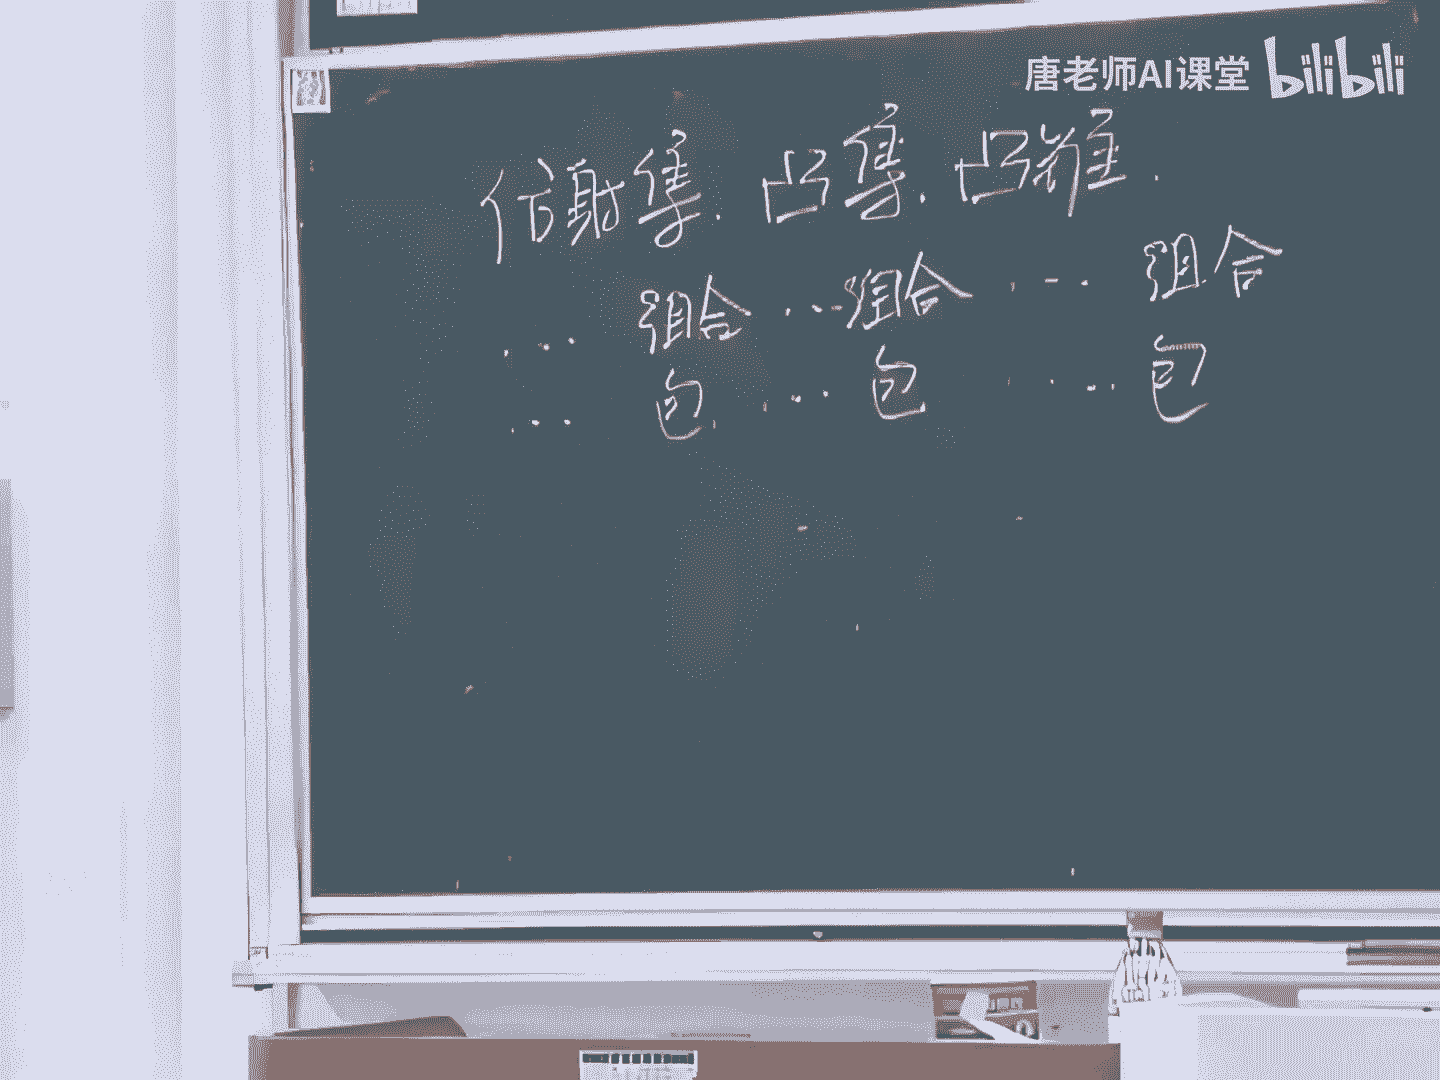 唐老师AI课堂 bilibili
仿射集. 凸集. 凸锥.
... 组合 ... 组合 ... 组合
... 包 ... 包 ... 包